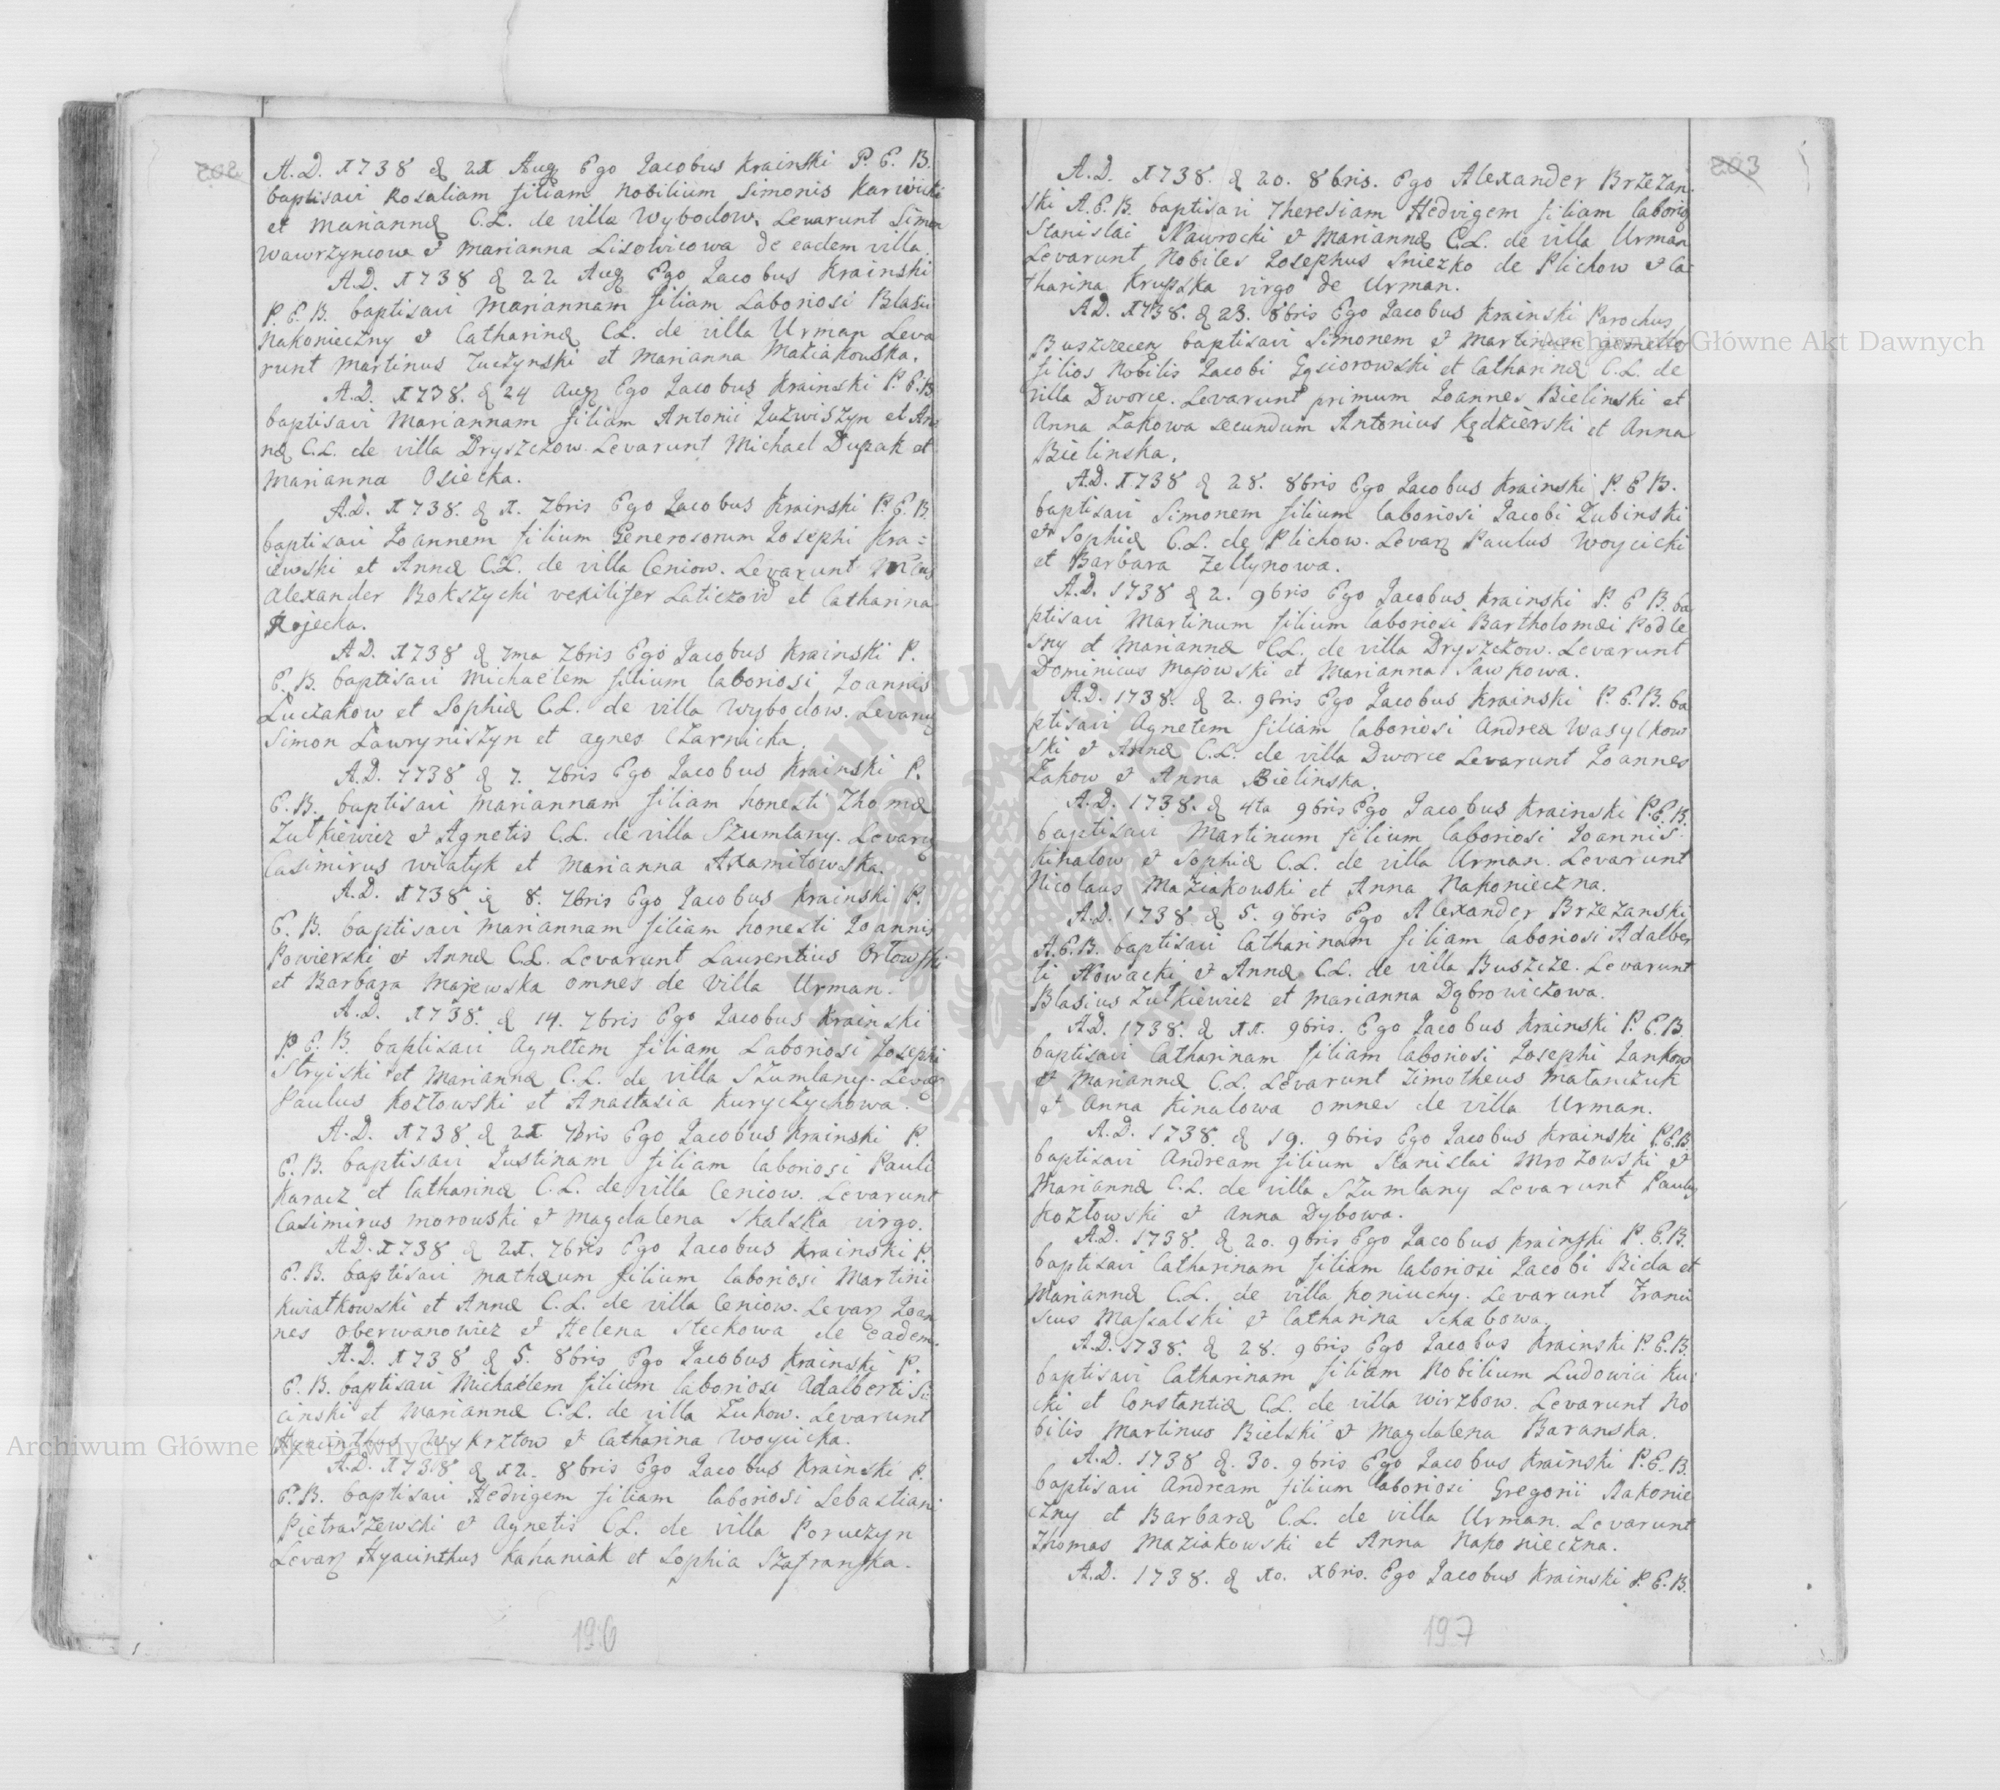 202
A.D. 1738 d 21 Aug Ego Jacobus Krainski P. E. B.
baptisavi Rosaliam filiam Nobilium Simonis Karwicki
et Mariannæ C.L. de villa Wybodow. Levarunt Simon
Wawrzyncow et Marianna Lisowicowa de eadem villa
A.D. 1738 d 22 Aug Ego Jacobus Krainski
P. E. B. baptisavi Mariannam filiam Laboriosi Blasii
Nakonieczny et Catharinæ C.L. de villa Urman Leva
runt Martinus Zuczynski et Marianna Maziakowska.
A.D. 1738. d 24 Aug Ego Jacobus Krainski P. E. B.
baptisavi Mariannam filiam Antonii Juzwiszyn et An
næ C.L. de villa Dryszczow. Levarunt Michael Dupak et
Marianna Osiecka.
A.D. 1738. d 1. 7bris Ego Jacobus Krainski P. E. B.
baptisavi Joannem filium Generosorum Josephi Kra=
iewski et Annæ C.L. de villa Ceniow. Levarunt
Alexander Bokszycki vexilifer Laticzov et Catharina
Rojecka.
A.D. 1738 d 7ma 7bris Ego Jacobus Krainski P.
E. B. baptisavi Michaelem filium laboriosi Joannis
Luczakow et Sophiæ C.L. de villa Wybodow. Levarunt
Simon Lawryniszyn et Agnes Czarnicka.
A.D. 1738 d 7. 7bris Ego Jacobus Krainski P.
E. B. baptisavi Mariannam filiam honesti Thomæ
Zułkiewicz et Agnetis C.L. de villa Szumlany. Levarunt
Casimirus Wiatyk et Marianna Axamitowska.
A.D. 1738 d 8. 7bris Ego Jacobus Krainski P.
E. B. baptisavi Mariannam filiam honesti Joannis
Powierski et Annæ C.L. Levarunt Laurentius Orłowski
et Barbara Majewska omnes de villa Urman.
A.D. 1738. d 14. 7bris Ego Jacobus Krainski
P. E. B. baptisavi Agnetem filiam Laboriosi Josephi
Stryiski et Mariannæ C.L. de villa Szumlany. Levar
Paulus Kozłowski et Anastasia Kuryczychowa.
A.D. 1738. d 21 7bris Ego Jacobus Krainski P.
E. B. baptisavi Justinam filiam laboriosi Pauli
Karacz et Catharinæ C.L. de villa Ceniow. Levarunt
Casimirus Morowski et Magdalena Skalska virgo.
A.D. 1738 d 21. 7bris Ego Jacobus Krainski P.
E. B. baptisavi Mathæum filium laboriosi Martini
Kwiatkowski et Annæ C.L. de villa Ceniow. Levar Joan
nes Oberwanowicz et Helena Steckowa de eadem.
A.D. 1738 d 5. 8bris Ego Jacobus Krainski P.
E. B. baptisavi Michaelem filium laboriosi Adalberti Si
cinski et Mariannæ C.L. de villa Zukow. Levarunt
Hyacinthus Wykrztow et Catharina Woycicka.
A.D. 1738 d 12. 8bris Ego Jacobus Krainski P.
E. B. baptisavi Hedvigem filiam laboriosi Sebastiani
Pietraszewski et Agnetis C.L. de villa Poruczyn
Levar Hyacinthus Kahaniak et Sophia Szafranska.
196
203
A.D. 1738. d 20. 8bris. Ego Alexander Brzezan-
ski A. E. B. baptisavi Theresiam Hedvigem filiam laborio
Stanislai Nawrocki et Mariannæ C.L. de villa Urman
Levarunt Nobiles Josephus Sniezko de Plichow et Ca-
tharina Krupska virgo de Urman.
A.D. 1738. d 23. 8bris Ego Jacobus Krainski Parochus
Buszczecen baptisavi Simonem et Martinum gemellos
filios Nobilis Jacobi Gąsiorowski et Catharinæ C.L. de
villa Dworce. Levarunt primum Joannes Bielinski et
Anna Zakowa secundum Antonius Kędzierski et Anna
Bielinska.
A.D. 1738 d 28. 8bris Ego Jacobus Krainski P. E. B.
baptisavi Simonem filium laboriosi Jacobi Zubinski
et Sophiæ C.L. de Plichow. Levar Paulus Woycicki
et Barbara Zeltynowa.
A.D. 1738 d 2. 9bris Ego Jacobus Krainski P. E. B. ba
ptisavi Martinum filium laboriosi Bartholomæi Podle
sny et Mariannæ C.L. de villa Dryszczow. Levarunt
Dominicus Majowski et Marianna Sawkowa.
A.D. 1738. d 2. 9bris Ego Jacobus Krainski P. E. B. ba
ptisavi Agnetem filiam laboriosi Andreæ Wasylkow
ski et Annæ C.L. de villa Dworce Levarunt Joannes
Zakow et Anna Bielinska.
A.D. 1738. d 4ta 9bris Ego Jacobus Krainski P. E. B.
baptisavi Martinum filium laboriosi Joannis
Kinalow et Sophiæ C.L. de villa Urman. Levarunt
Nicolaus Maziakowski et Anna Nakonieczna.
A.D. 1738 d 5. 9bris Ego Alexander Brzezanski
A. E. B. baptisavi Catharinam filiam laboriosi Adalber
ti Nowacki et Annæ C.L. de villa Buszcze. Levarunt
Blasius Zułkiewicz et Marianna Dąbrowiczowa.
A.D. 1738. d 11. 9bris. Ego Jacobus Krainski P. E. B.
baptisavi Catharinam filiam laboriosi Josephi Jankow
et Mariannæ C.L. Levarunt Timotheus Matanczuk
et Anna Kinalowa omnes de villa Urman.
A.D. 1738. d 19. 9bris Ego Jacobus Krainski P. E. B.
baptisavi Andream filium Stanislai Mrozowski et
Mariannæ C.L. de villa Szumlany Levarunt Paulus
Kozłowski et Anna Dybowa.
A.D. 1738. d 20. 9bris Ego Jacobus Krainski P. E. B.
baptisavi Catharinam filiam laboriosi Jacobi Bida et
Mariannæ C.L. de villa Koniuchy. Levarunt Franci
scus Massalski et Catharina Schabowa.
A.D. 1738. d 28. 9bris Ego Jacobus Krainski P. E. B.
baptisavi Catharinam filiam Nobilium Ludovici Ku-
cki et Constantiæ C.L. de villa Wirzbow. Levarunt No
bilis Martinus Bielski et Magdalena Baranska.
A.D. 1738 d. 30. 9bris Ego Jacobus Krainski P. E. B.
baptisavi Andream filium laboriosi Gregorii Nakonie
czny et Barbaræ C.L. de villa Urman. Levarunt
Thomas Maziakowski et Anna Nakonieczna.
A.D. 1738. d 10. Xbris. Ego Jacobus Krainski P. E. B.
197
Archiwum Główne Akt Dawnych
Archiwum Główne Akt Dawnych